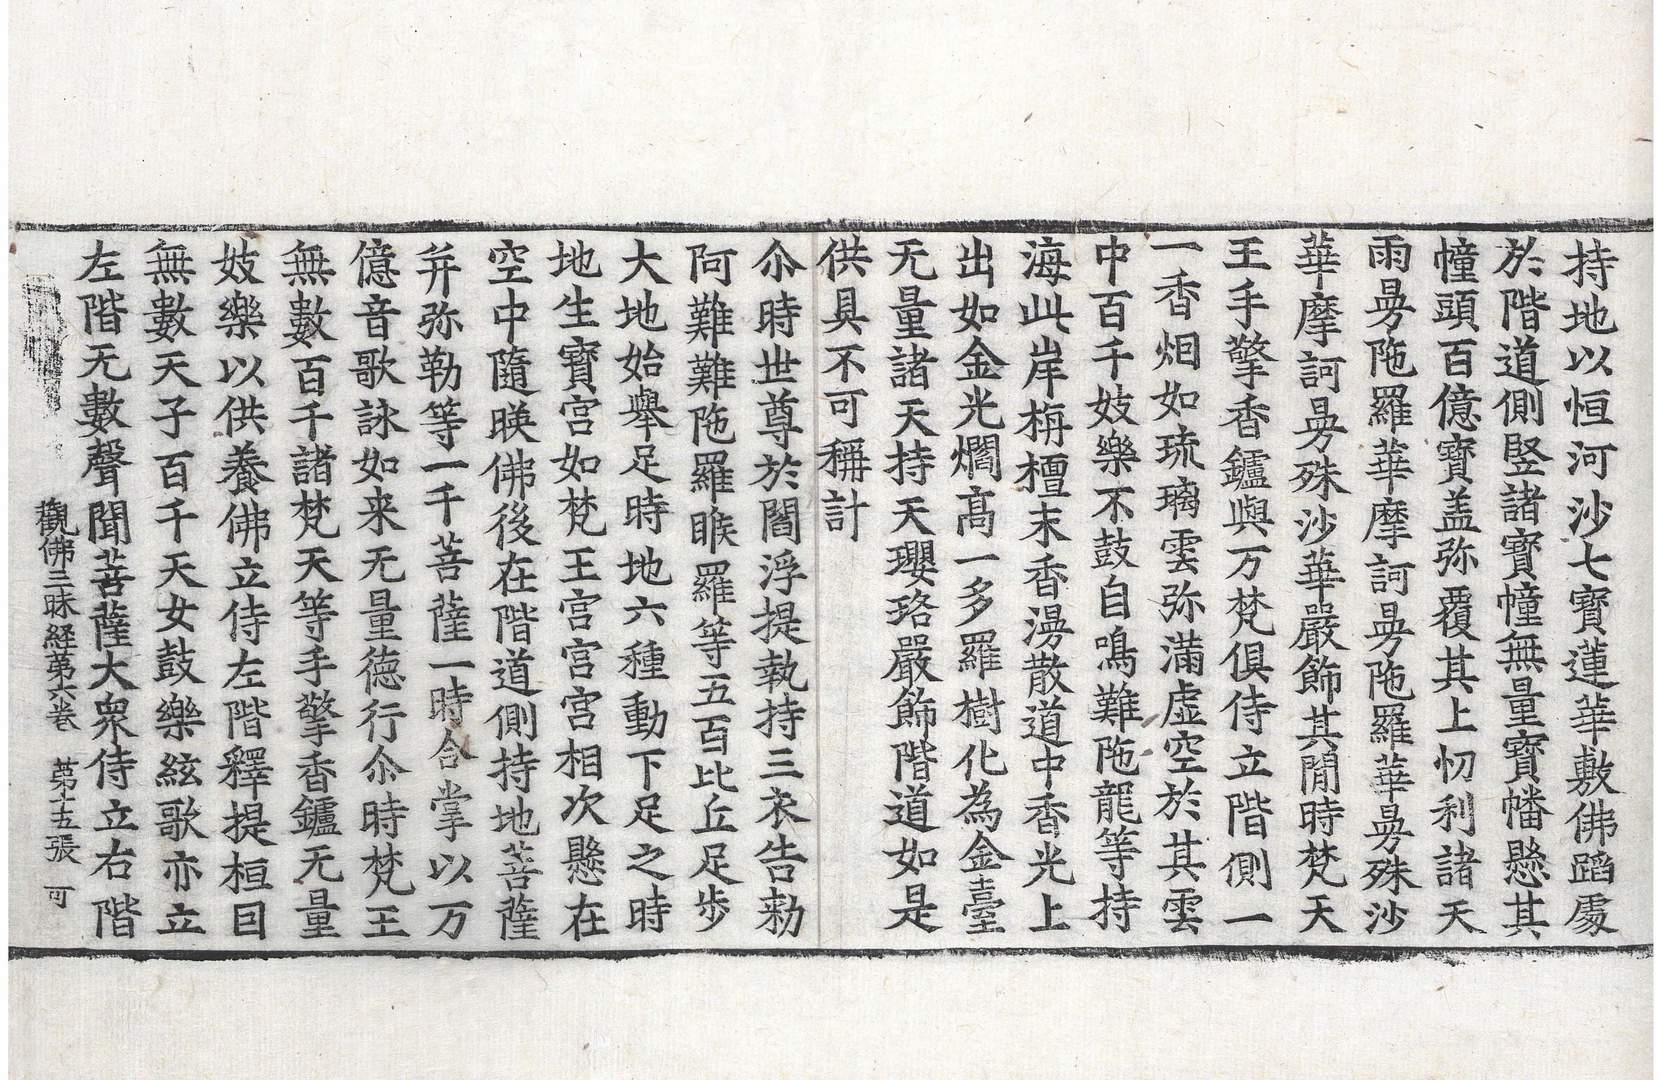 持地以恒河沙七寶蓮華敷佛蹈處
於階道側竪諸寶幢無量寶幡懸其
幢頭百億寶盖弥覆其上忉利諸天
雨曼陁羅華摩訶曼陁羅華曼殊沙
華摩訶曼殊沙華嚴飾其閒時梵天
王手擎香鑪與万梵俱侍立階側一
一香烟如琉璃雲弥滿虛空於其雲
中百千妓樂不鼓自鳴難陁龍等持
海此岸栴檀末香漫散道中香光上
出如金光爓高一多羅樹化為金臺
无量諸天持天瓔珞嚴飾階道如是
供具不可稱計
尒時世尊於閻浮提執持三衣告勑
阿難難陁羅睺羅等五百比丘足步
大地始舉足時地六種動下足之時
地生寶宮如梵王宮宮宮相次懸在
空中隨映佛後在階道側持地菩薩
并弥勒等一千菩薩一時合掌以万
億音歌詠如来无量德行尒時梵王
無數百千諸梵天等手擎香鑪无量
妓樂以供養佛立侍左階釋提桓因
無數天子百千天女鼓樂絃歌亦立
左階无數聲聞菩薩大衆侍立右階
觀佛三昧経第六卷 第十五張 可